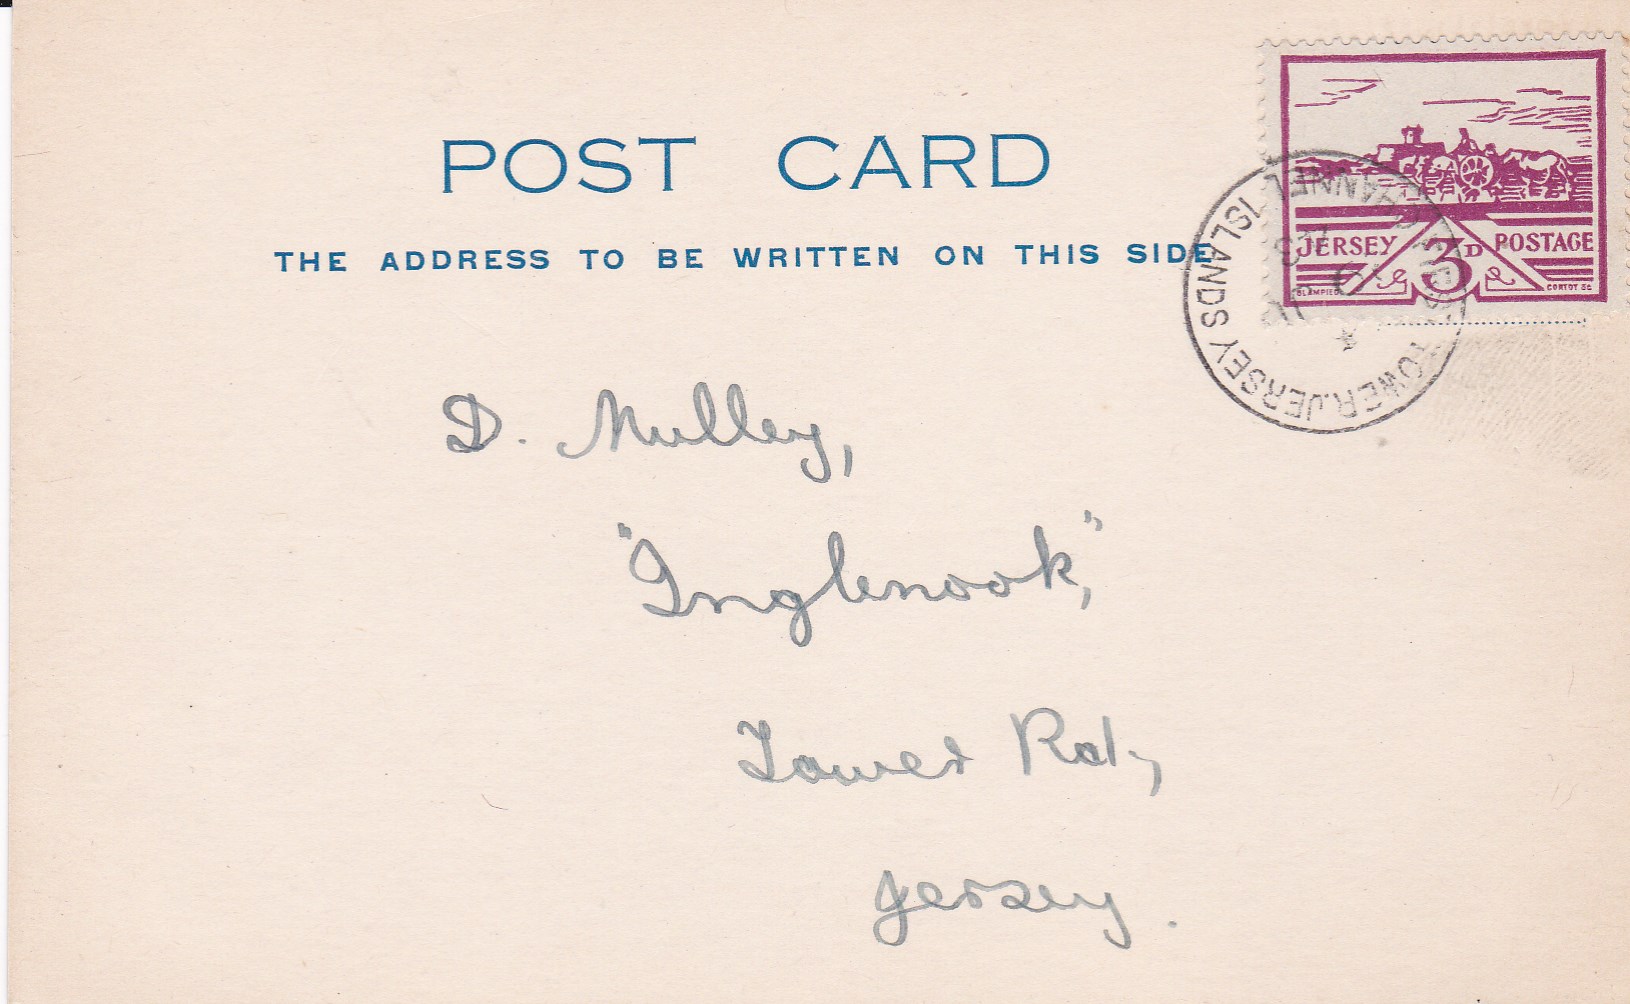 POST CARD
THE ADDRESS TO BE WRITTEN ON THIS SIDE
JERSEY 3D POSTAGE
BLAMPIED CORTOT SC
TOWER. JERSEY CHANNEL ISLANDS
D. Mulley,
"Inglenook,"
Tower Rd.,
Jersey.